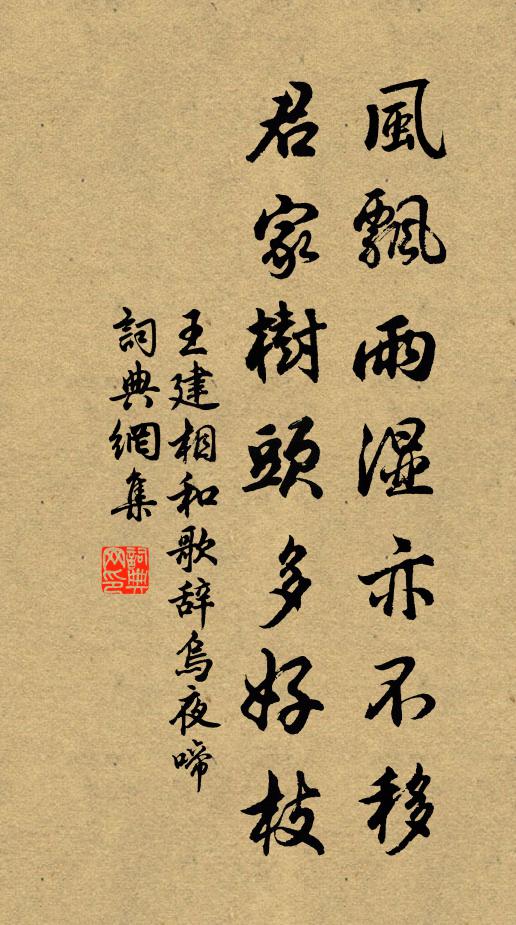 風飄雨湿亦不移
君家樹頭多好枝
王建相和歌辞烏夜啼
詞典網集
詞典网印